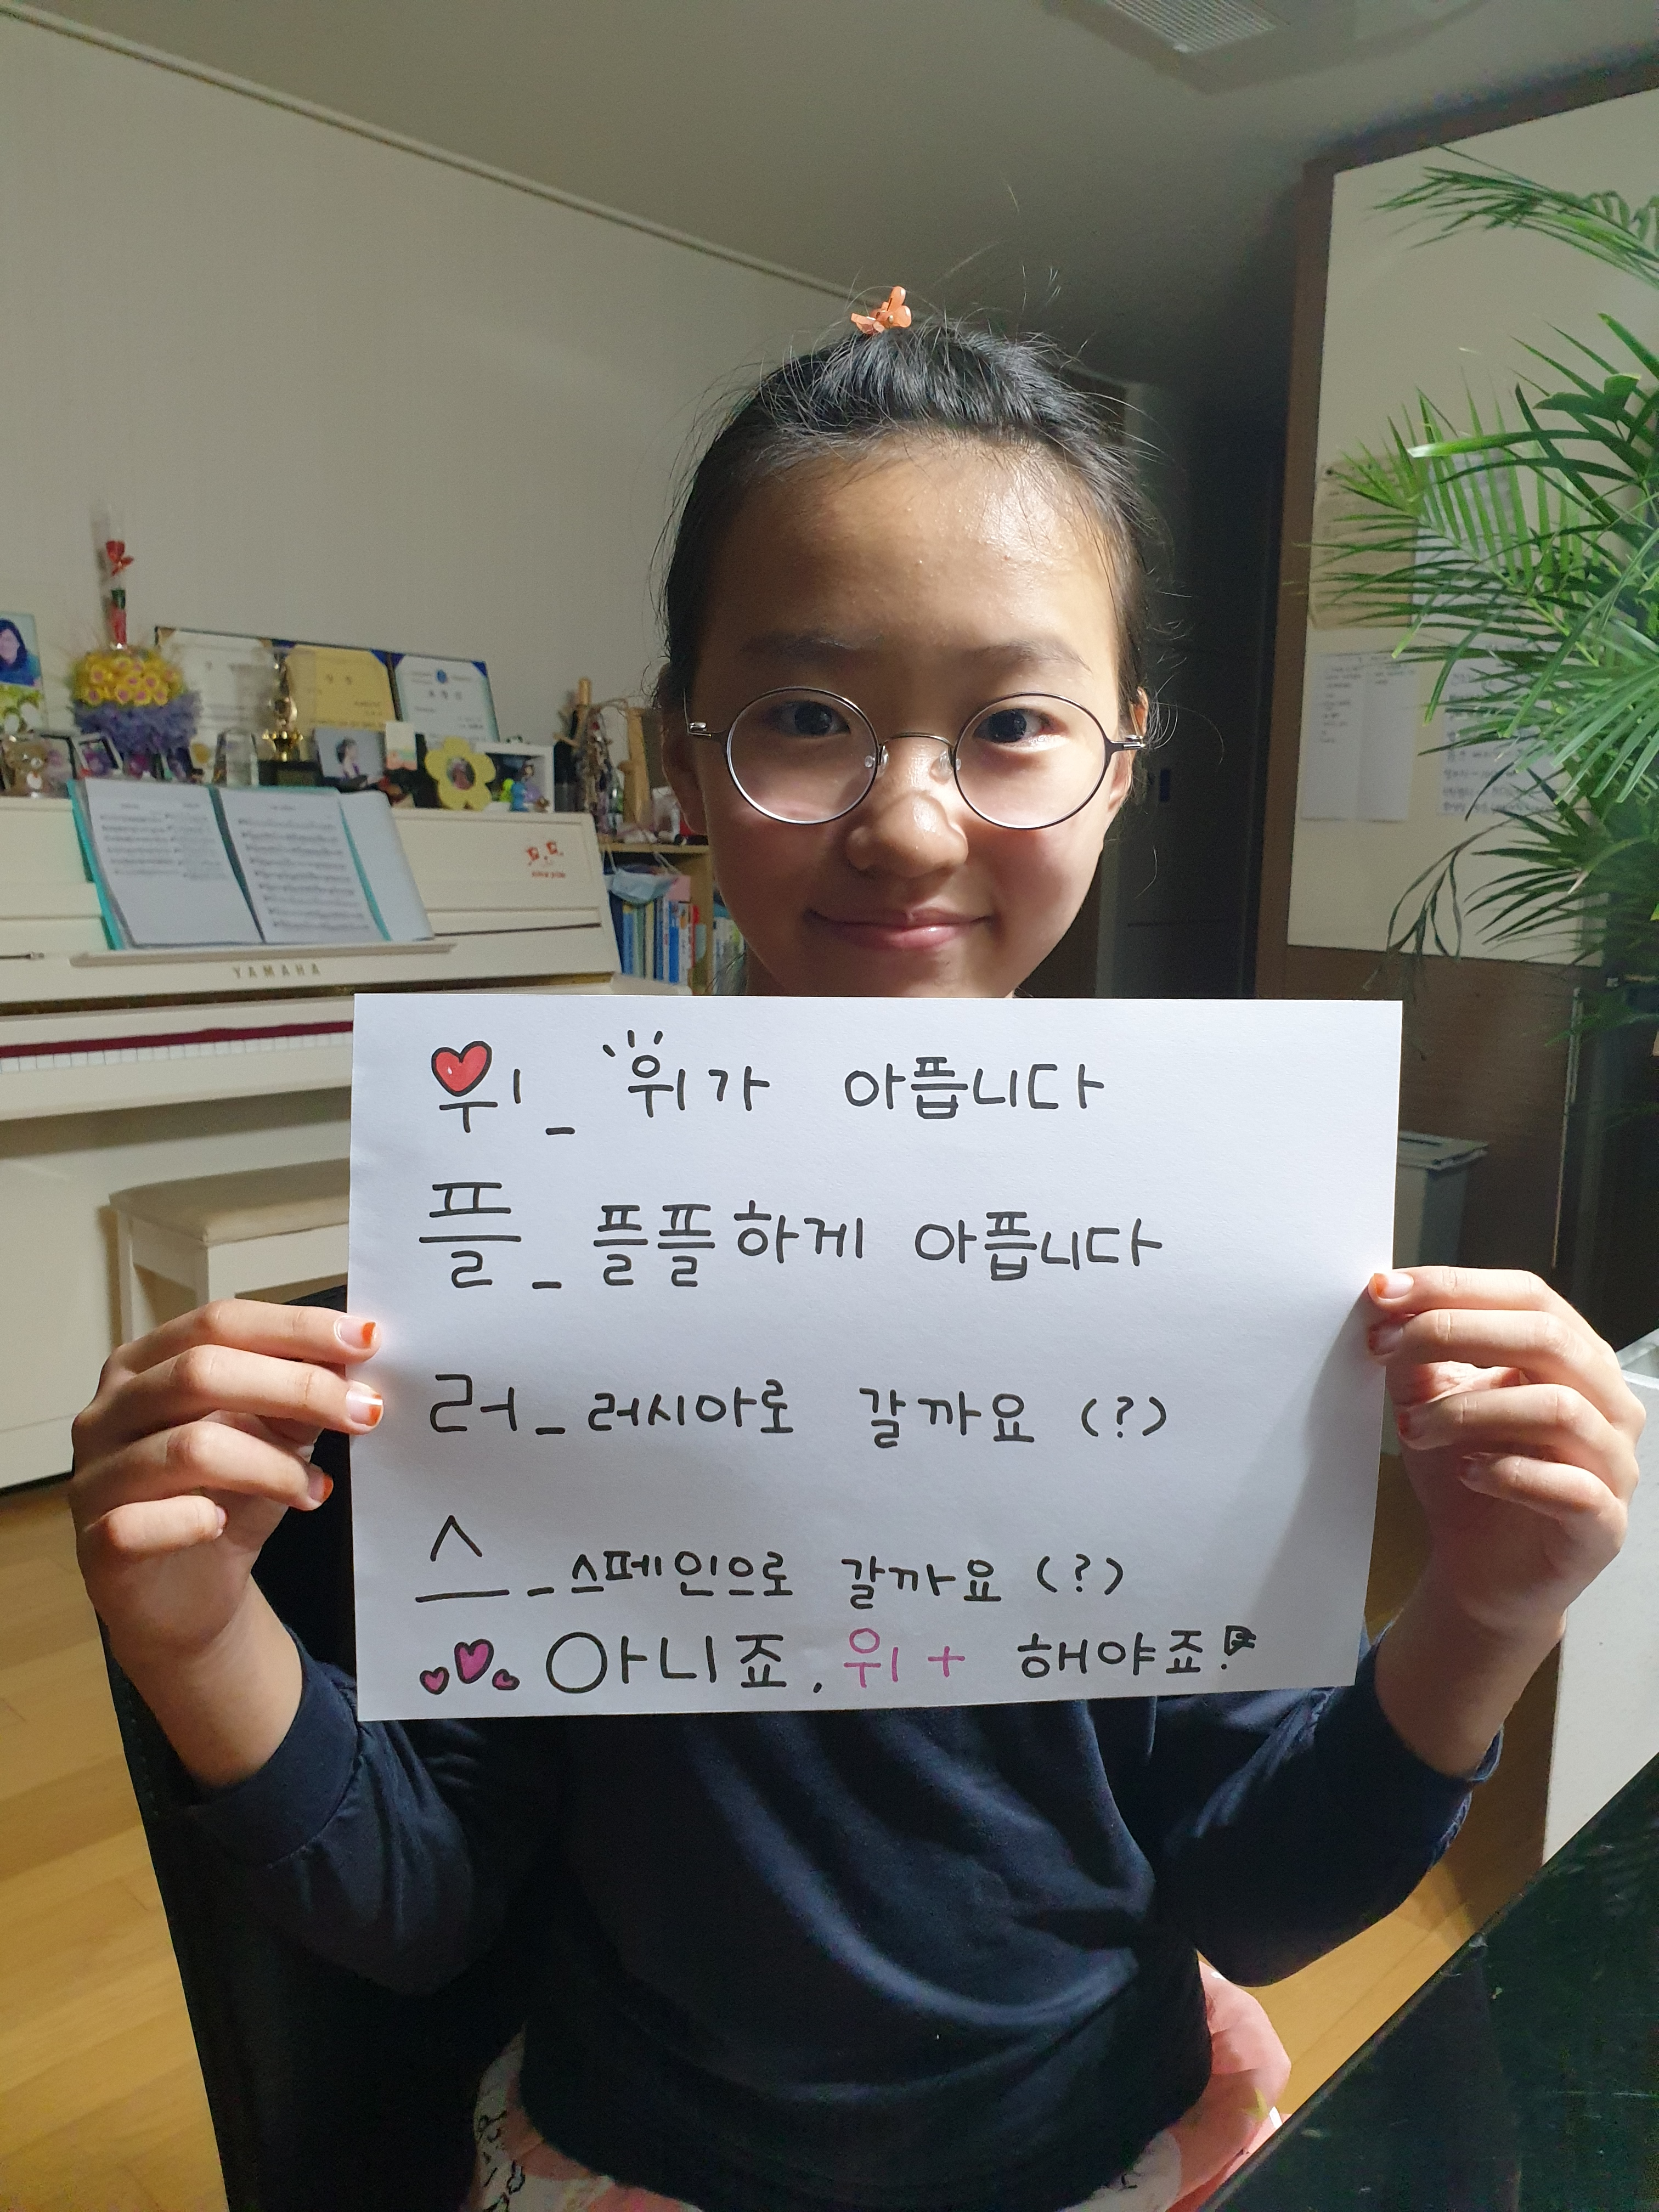 YAMAHA
위 _ 위가 아픕니다
플 _ 플플하게 아픕니다
러 _ 러시아로 갈까요 (?)
스 _ 스페인으로 갈까요 (?)
아니죠. 위+ 해야죠!